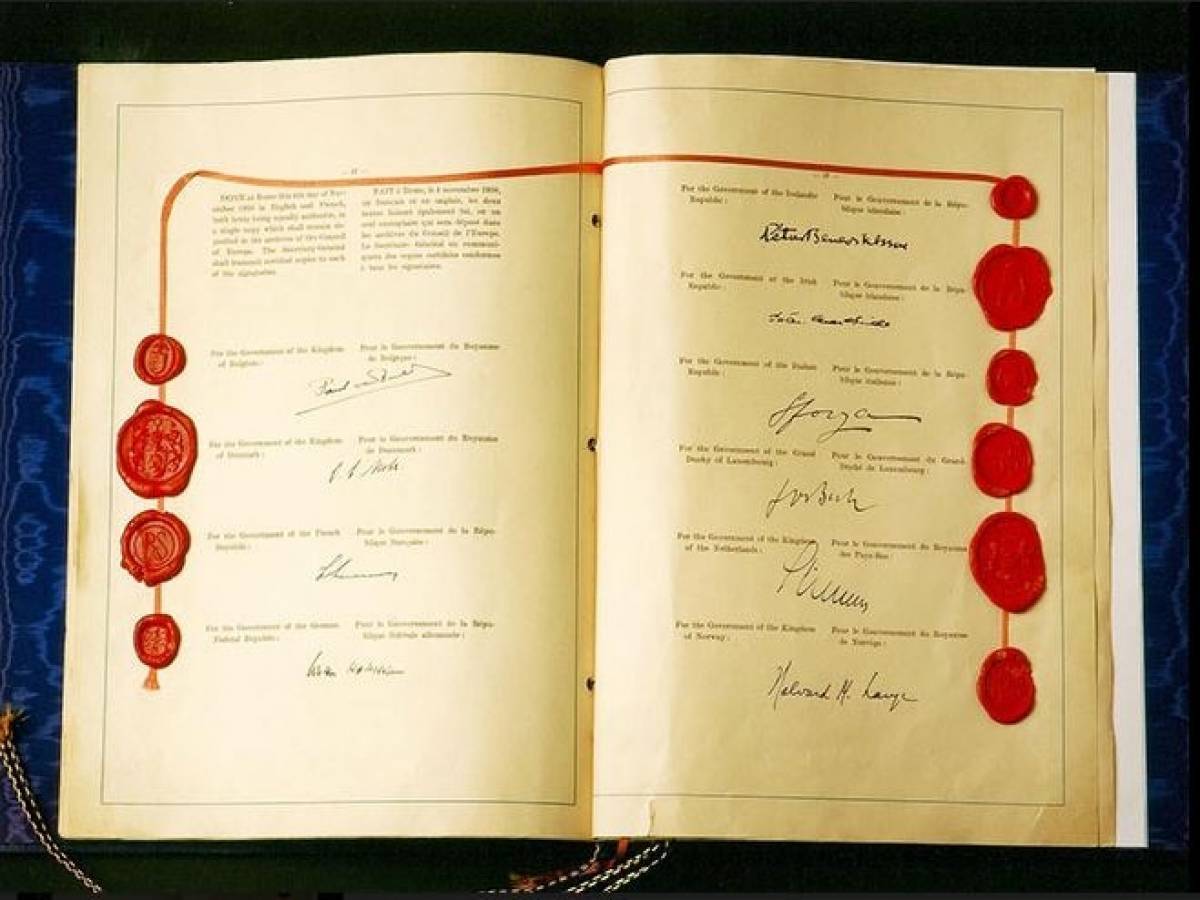 DONE at Rome this 4th day of November 1950 in English and French,
both texts being equally authentic, in
a single copy which shall remain deposited in the archives of the Council
of Europe. The Secretary-General
shall transmit certified copies to each
of the signatories.
FAIT à Rome, le 4 novembre 1950,
en français et en anglais, les deux
textes faisant également foi, en un
seul exemplaire qui sera déposé dans
les archives du Conseil de l'Europe.
Le Secrétaire Général en communiquera des copies certifiées conformes
à tous les signataires.
For the Government of the Kingdom
of Belgium:
Pour le Gouvernement du Royaume
de Belgique:
For the Government of the Kingdom
of Denmark:
Pour le Gouvernement du Royaume
de Danemark:
For the Government of the French
Republic:
Pour le Gouvernement de la Répu-
blique française:
For the Government of the German
Federal Republic:
Pour le Gouvernement de la Répu-
blique fédérale allemande:
For the Government of the Icelandic
Republic:
Pour le Gouvernement de la Répu-
blique islandaise:
For the Government of the Irish
Republic:
Pour le Gouvernement de la Répu-
blique irlandaise:
For the Government of the Italian
Republic:
Pour le Gouvernement de la Répu-
blique italienne:
Sforza
For the Government of the Grand
Duchy of Luxembourg:
Pour le Gouvernement du Grand-
Duché de Luxembourg:
Jos Bech
For the Government of the Kingdom
of the Netherlands:
Pour le Gouvernement du Royaume
des Pays-Bas:
For the Government of the Kingdom
of Norway:
Pour le Gouvernement du Royaume
de Norvège:
Halvard M. Lange